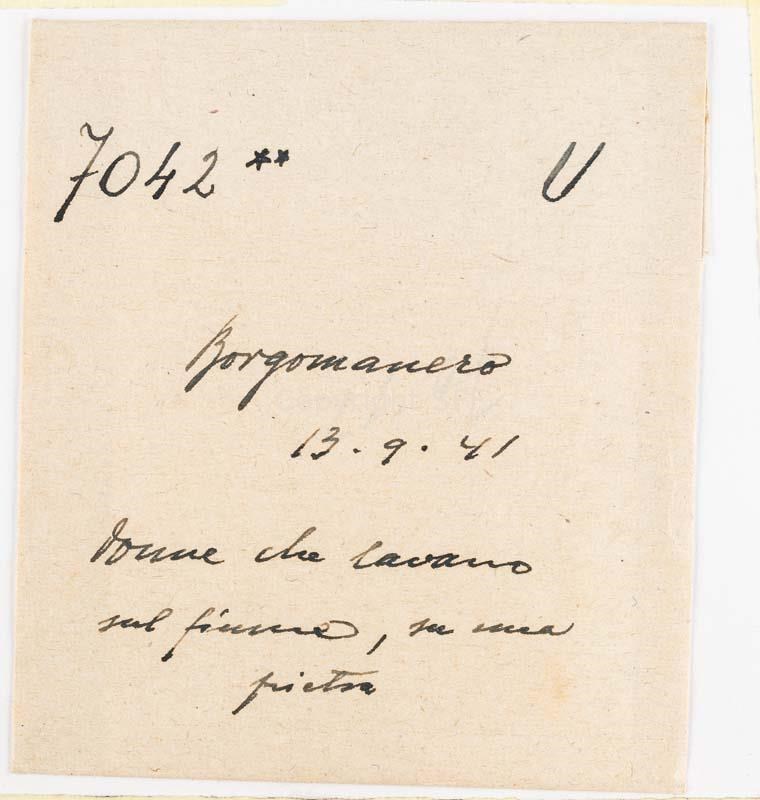 7042 ** U
Borgomanero
13. 9. 41
donne che lavano
sul fiume, su una
pietra